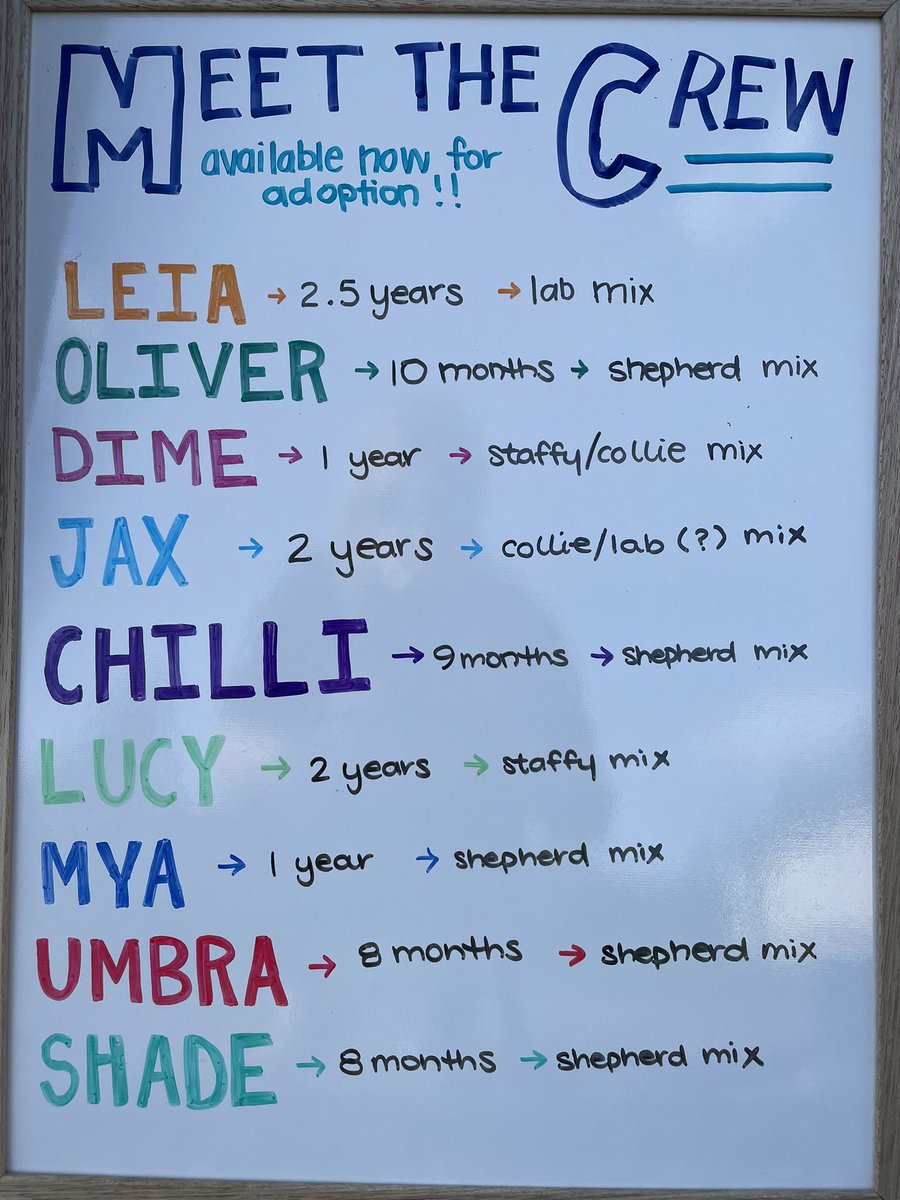 MEET THE CREW
available now for
adoption !!
LEIA → 2.5 years → lab mix
OLIVER → 10 months → shepherd mix
DIME → 1 year → staffy/collie mix
JAX → 2 years → collie/lab (?) mix
CHILLI → 9 months → shepherd mix
LUCY → 2 years → staffy mix
MYA → 1 year → shepherd mix
UMBRA → 8 months → shepherd mix
SHADE → 8 months → shepherd mix